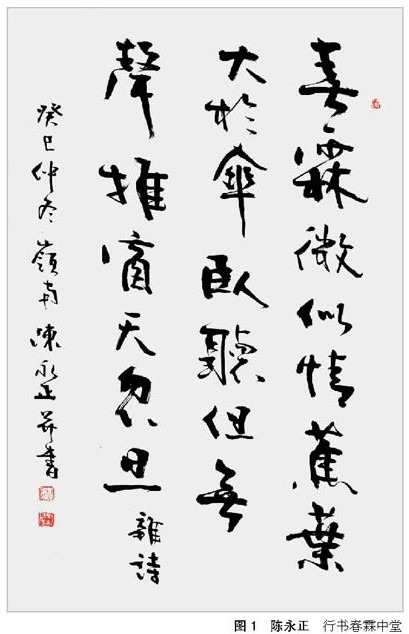 春霖微似情蕉葉
大於傘臥聽但無
聲推窗天忽旦
雜詩
癸巳仲冬嶺南陳永正并書
图1 陈永正 行书春霖中堂